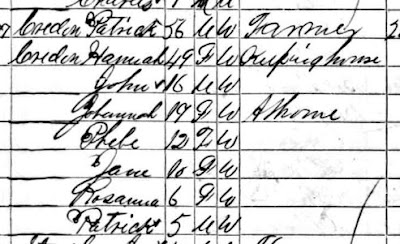 Charles 1 M W
Credon Patrick 56 M W Farmer
Credon Hannah 49 F W Keeping house
John 16 M W
Johannah 19 F W At home
Phebe 12 F W
Jane 10 F W
Rosanna 6 F W
Patrick 5 M W